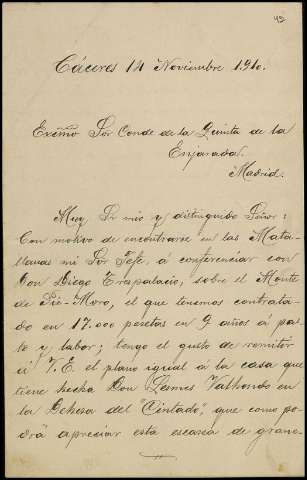 49
Cáceres 14 Noviembre 1.910.
Excmo Sor Conde de la Quinta de la
Enjarada.
Madrid.
Muy Sr mio y distinguido Señor:
Con motivo de encontrarse en las Mata-
llanas mi Sor Jefe, á conferenciar con
Don Diego Trapalacio, sobre el Monte
de Pie-Moro, el que tenemos contrata-
do en 17.000 pesetas en 9 años á pas-
to y labor; tengo el gusto de remitir
á V.E. el plano igual á la casa que
tiene hecha Don James Valhondo en
la Dehesa del "Cintado", que como po-
drá apreciar está escasa de grane-